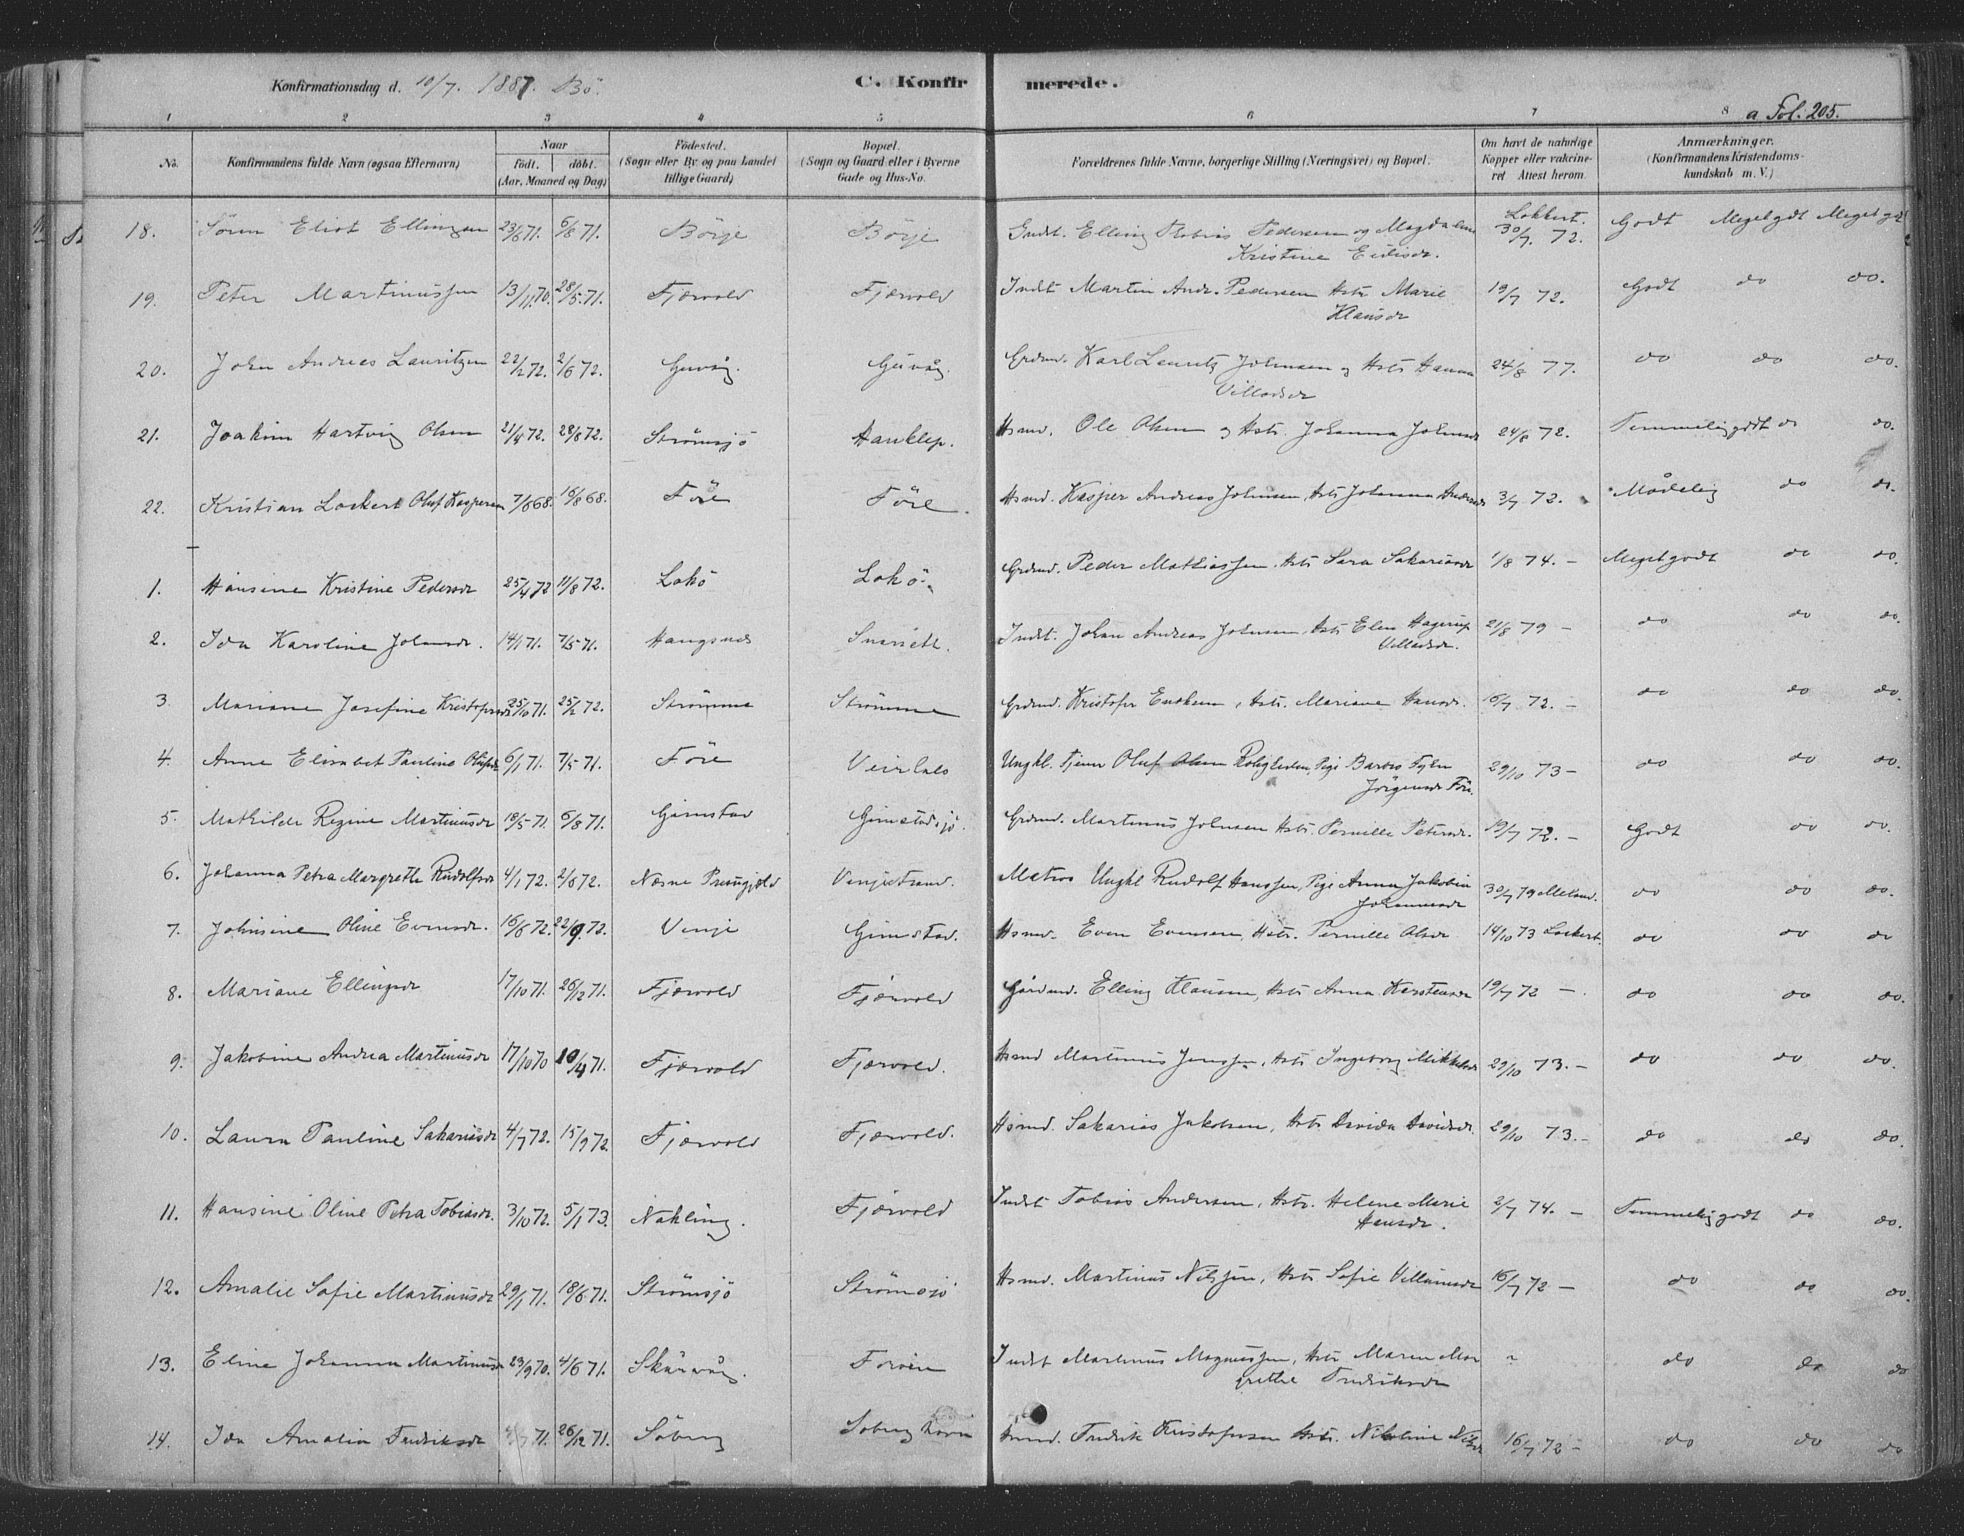 Konfirmationsdag d. 10/7. 1887. Bö. C. Konfirmerede. a Fol. 205.
1 2 3 4 5 6 7 8
No. Konfirmandens fulde Navn (ogsaa Efternavn) Naar födt. döbt. (Aar, Maaned og Dag) Födested. (Sogn eller By og paa Landet tillige Gaard) Bopæl. (Sogn og Gaard eller i Byerne Gade og Hus-No. Forældrenes fulde Navne, borgerlige Stilling (Næringsvei) og Bopæl. Om havt de naturlige Kopper eller vakcineret Attest herom. Anmærkninger. (Konfirmandens Kristendomskundskab m. V.)
18. Sören Eliot Ellingsen 23/6 71. 6/8 71. Börje Börje Indst. Elling Tobias Pedersen og Magdalena Kristine Eidisdr. Lokkert. 30/7. 72. Godt Meget gdt Meget gdt
19. Peter Martinussen 13/11 70. 28/5 71. Fjærvold Fjærvold Indst Martin Andr. Pedersen Hstr Marie Klausdr 19/7 72. Godt do do.
20. John Andreas Lauritzen 22/2 72. 2/6 72. Guvåg. Guvåg. Grdmd. Karl Lauritz Johnsen og Hstr Hanna Villadsdr 24/8 77. do do do.
21. Joakim Hartvig Olsen 21/4 72. 28/8 72. Strömsjö Hauklep. Hsmd. Ole Olsen og Hstr. Johanna Johnsdr 24/8 72. Temmelig godt do do.
22. Kristian Lockert Oluf Kaspersen 7/6 68. 16/8 68. Före Före. Hsmd. Kasper Andreas Johnsen, Hstr Johanna Andersdr 3/7 72. Mådelig do do.
1. Hansine Kristine Pedersdr 25/4 72 11/8 72. Lokö Lokö. Grdmd. Peder Mathiassen, Hstr Sara Sakariasdr 1/8 74. – Meget godt do do.
2. Ida Karoline Johansdr. 14/1 71. 7/5 71. Haugsnes Indst. Johan Andreas Johnsen, Hstr Elen Hagerup Villadsdr. 21/8 79 – do do do.
3. Mariane Josefine Kristofersdr 25/10 71. 25/2 72. Strömme Strömme Grdmd. Kristofer Enoksen, Hstr. Mariane Hansdr. 16/7 72. – do do do.
4. Anne Elisabet Pauline Olufsdr 6/1 71. 7/5 71. Före Ungkl. Tjener Oluf Olsen Pige Jörgensdr Före. 29/10 73 – do do do.
5. Mathilde Regine Martinusdr 18/5 71. 6/8 71. Gimstad Gimstadsjö. Grdmd. Martinus Johnsen Hstr. Pernille Petersdr. 19/7 72. – Godt do do.
6. Johanna Petra Margrethe Rudolfsdr 4/1 72. 2/6 72. Næsne Præsgjeld Vinjestrand. Matros Ungkl Rudolf Hanssen, Pige Anna Jakobia Johannesdr 30/7 79 do do do.
7. Johnsine Oline Evensdr. 16/6 72. 22/9 72. Vinje Gimstad. Hsmd. Even Evensen, Hstr. Pernille Olsdr 14/10 73 Lockert. do do do
8. Mariane Ellingsdr 17/10 71. 26/12 71. Fjærvold Fjærvold Gårdmd. Elling Klausen, Hstr Anna Kerstensdr 19/7 72 – do do do.
9. Jakobine Andrea Martinusdr 17/10 70 10/4 71. Fjærvold Fjærvold. Hsmd Martinus Jenssen, Hstr Ingeborg Mikkelsdr 29/10 73. – do do do.
10. Laura Pauline Sakariasdr 4/7 72. 15/9 72. Fjærvold Fjærvold. Hsmd. Sakarias Jakobsen, Hstr Davida Davidsdr. 29/10 73. – do do do.
11. Hansine Oline Petra Tobiasdr. 3/10 72. 5/1 73. Nykling. Fjærvold Indst Tobias Andersen, Hstr. Helene Marie Hansdr. 2/7 74. – Temmelig godt do do.
12. Amalie Sofie Martinusdr 29/1 71. 18/6 71. Strömsjö Strömsjö Hsmd. Martinus Nilssen, Hstr Sofie Villumsdr 16/7 72 – do do do.
13. Eline Johanna Martinusdr 23/9 70. 4/6 71. Skårvåg. Foröen Indst Martinus Magnussen, Hstr Maren Margrethe Fredriksdr " do do do
14. Ida Amalia Fredriksdr 71. 26/12 71. Söberg Söberg Hsmd. Fredrik Kristofersen Hstr. Nikoline Nilsdr 16/7 72 – do do do